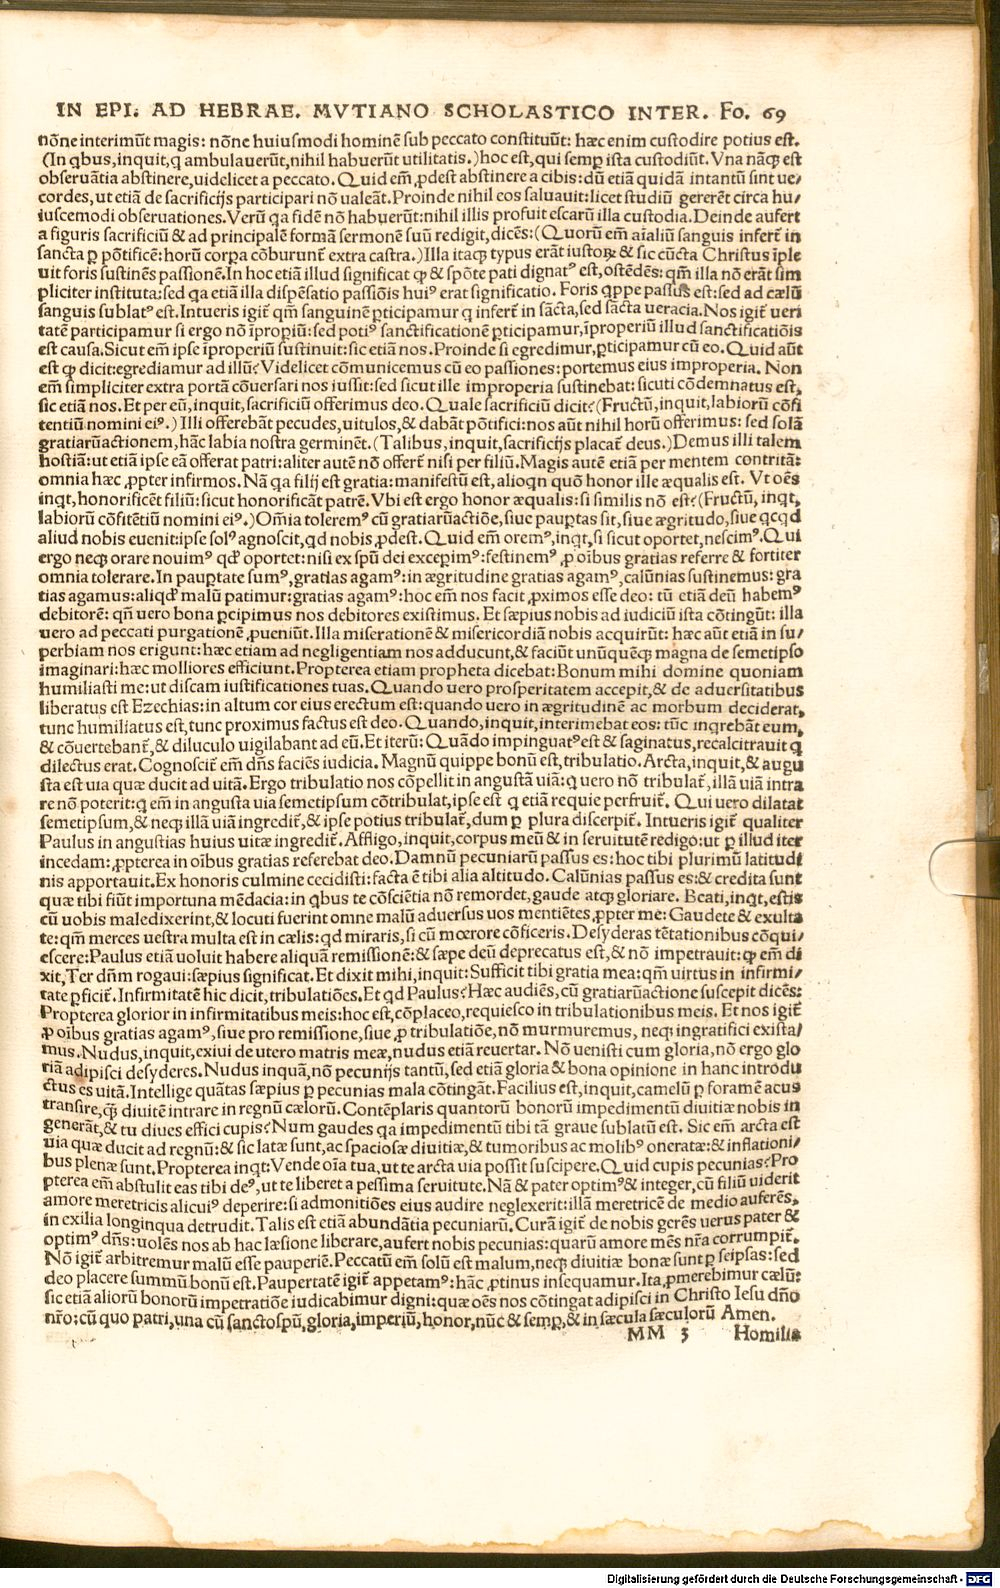 IN EPI. AD HEBRAE. MVTIANO SCHOLASTICO INTER. Fo. 69
nõne interimũt magis: nõne huiusmodi hominẽ sub peccato constituũt: hæc enim custodire potius est.
(In qbus, inquit, q ambulauerũt, nihil habuerũt utilitatis.) hoc est, qui semp ista custodiũt. Vna nãq; est
obseruãtia abstinere, uidelicet a peccato. Quid em̃, ꝓdest abstinere a cibis: dũ etiã quidã intantũ sint ue/
cordes, ut etiã de sacrificijs participari nõ ualeãt. Proinde nihil eos saluauit: licet studiũ gererẽt circa hu/
iuscemodi obseruationes. Verũ qa fidẽ nõ habuerũt: nihil illis profuit escarũ illa custodia. Deinde aufert
a figuris sacrificiũ & ad principalẽ formã sermonẽ suũ redigit, dicẽs: (Quorũ em̃ aialiũ sanguis infert̃ in
sancta ꝑ põtificẽ: horũ corpa cõburunt̃ extra castra.) Illa itaq; typus erãt iustoꝝ & sic cũcta Christus iple
uit foris sustinẽs passionẽ. In hoc etiã illud significat ꝙ & spõte pati dignatꝰ est, ostẽdẽs: qm̃ illa nõ erãt sim
pliciter instituta: sed qa etiã illa dispẽsatio passiõis huiꝰ erat significatio. Foris qppe passus est: sed ad cælũ
sanguis sublatꝰ est. Intueris igit̃ qm̃ sanguinẽ ꝑticipamur q infert̃ in sãcta, sed sãcta ueracia. Nos igit̃ ueri
tatẽ participamur si ergo nõ ĩpropiũ: sed potiꝰ sanctificationẽ ꝑticipamur, ĩproperiũ illud sanctificatiõis
est causa. Sicut em̃ ipse ĩproperiũ sustinuit: sic etiã nos. Proinde si egredimur, ꝑticipamur cũ eo. Quid aũt
est ꝙ dicit: egrediamur ad illũ? Videlicet cõmunicemus cũ eo passiones: portemus eius improperia. Non
em̃ simpliciter extra portã cõuersari nos iussit: sed sicut ille improperia sustinebat: sicuti cõdemnatus est,
sic etiã nos. Et per eũ, inquit, sacrificiũ offerimus deo. Quale sacrificiũ dicit? (Fructũ, inquit, labiorũ cõfi
tentiũ nomini eiꝰ.) Illi offerebãt pecudes, uitulos, & dabãt põtifici: nos aũt nihil horũ offerimus: sed solã
gratiarũactionem, hãc labia nostra germinẽt. (Talibus, inquit, sacrificijs placat̃ deus.) Demus illi talem
hostiã: ut etiã ipse eã offerat patri: aliter autẽ nõ offert̃ nisi per filiũ. Magis autẽ etiã per mentem contritã:
omnia hæc ꝓpter infirmos. Nã qa filij est gratia: manifestũ est, alioqn quõ honor ille æqualis est. Vt oẽs
inqt, honorificẽt filiũ: sicut honorificãt patrẽ. Vbi est ergo honor æqualis: si similis nõ est? (Fructũ, inqt,
labiorũ cõfitẽtiũ nomini eiꝰ.) Om̃ia toleremꝰ cũ gratiarũactiõe, siue paupꝑtas sit, siue ægritudo, siue qcqd
aliud nobis euenit: ipse solꝰ agnoscit, qd nobis ꝓdest. Quid em̃ oremꝰ, inqt, si sicut oportet, nescimꝰ. Qui
ergo neq; orare nouimꝰ qd̃ oportet: nisi ex spũ dei exceperimꝰ: festinemꝰ, ꝓ oĩbus gratias referre & fortiter
omnia tolerare. In pauꝑtate sumꝰ, gratias agamꝰ: in ægritudine gratias agamꝰ, calũnias sustinemus: gra
tias agamus: aliqd̃ malũ patimur: gratias agamꝰ: hoc em̃ nos facit ꝓximos esse deo: tũ etiã deũ habemꝰ
debitorẽ: qñ uero bona ꝑcipimus nos debitores existimus. Et sæpius nobis ad iudiciũ ista cõtingũt: illa
uero ad peccati purgationẽ ꝓueniũt. Illa miserationẽ & misericordiã nobis acquirũt: hæc aũt etiã in su/
perbiam nos erigunt: hæc etiam ad negligentiam nos adducunt, & faciũt unũquẽq; magna de semetipso
imaginari: hæc molliores efficiunt. Propterea etiam propheta dicebat: Bonum mihi domine quoniam
humiliasti me: ut discam iustificationes tuas. Quando uero prosperitatem accepit, & de aduersitatibus
liberatus est Ezechias: in altum cor eius erectum est: quando uero in ægritudinẽ ac morbum deciderat,
tunc humiliatus est, tunc proximus factus est deo. Quando, inquit, interimebat eos: tũc inqrebãt eum,
& cõuertebant̃, & diluculo uigilabant ad eũ. Et iterũ: Quãdo impinguatꝰ est & saginatus, recalcitrauit q
dilectus erat. Cognoscit̃ em̃ dñs faciẽs iudicia. Magnũ quippe bonũ est, tribulatio. Arcta, inquit, & augu
sta est uia quæ ducit ad uitã. Ergo tribulatio nos cõpellit in angustã uiã: q uero nõ tribulat̃, illã uiã intra
re nõ poterit: q em̃ in angusta uia semetipsum cõtribulat, ipse est q etiã requie perfruit̃. Qui uero dilatat
semetipsum, & neq; illã uiã ingredit̃, & ipse potius tribulat̃, dum ꝑ plura discerpit̃. Intueris igit̃ qualiter
Paulus in angustias huius uitæ ingredit̃. Affligo, inquit, corpus meũ & in seruitutẽ redigo: ut ꝑ illud iter
incedam: ꝓpterea in oĩbus gratias referebat deo. Damnũ pecuniarũ passus es: hoc tibi plurimũ latitudi
nis apportauit. Ex honoris culmine cecidisti: facta ẽ tibi alia altitudo. Calũnias passus es: & credita sunt
quæ tibi fiũt importuna mẽdacia: in qbus te cõsciẽtia nõ remordet, gaude atq; gloriare. Beati, inqt, estis
cũ uobis maledixerint, & locuti fuerint omne malũ aduersus uos mentiẽtes, ꝓpter me: Gaudete & exulta
te: qm̃ merces uestra multa est in cælis: qd miraris, si cũ mœrore cõficeris. Desyderas tẽtationibus cõqui/
escere: Paulus etiã uoluit habere aliquã remissionẽ: & sæpe deũ deprecatus est, & nõ impetrauit: ꝙ em̃ di
xit, Ter dñm rogaui: sæpius significat. Et dixit mihi, inquit: Sufficit tibi gratia mea: qm̃ uirtus in infirmi/
tate ꝑficit̃. Infirmitatẽ hic dicit, tribulatiões. Et qd Paulus? Hæc audiẽs, cũ gratiarũactione suscepit dicẽs:
Propterea glorior in infirmitatibus meis: hoc est, cõplaceo, requiesco in tribulationibus meis. Et nos igit̃
ꝓ oĩbus gratias agamꝰ, siue pro remissione, siue ꝓ tribulatiõe, nõ murmuremus, neq; ingratifici exista/
mus. Nudus, inquit, exiui de utero matris meæ, nudus etiã reuertar. Nõ uenisti cum gloria, nõ ergo glo
riã adipisci desyderes. Nudus inquã, nõ pecunijs tantũ, sed etiã gloria & bona opinione in hanc introdu
ctus es uitã. Intellige quãtas sæpius ꝑ pecunias mala cõtingãt. Facilius est, inquit, camelũ ꝑ foramẽ acus
transire, ꝙ̃ diuitẽ intrare in regnũ cælorũ. Contẽplaris quantorũ bonorũ impedimentũ diuitiæ nobis in
generãt, & tu diues effici cupis? Num gaudes qa impedimentũ tibi tã graue sublatũ est. Sic em̃ arcta est
uia quæ ducit ad regnũ: & sic latæ sunt, ac spaciosæ diuitiæ, & tumoribus ac molibꝰ oneratæ: & inflationi/
bus plenæ sunt. Propterea inqt: Vende oĩa tua, ut te arcta uia possit suscipere. Quid cupis pecunias? Pro
pterea em̃ abstulit eas tibi deꝰ, ut te liberet a pessima seruitute. Nã & pater optimꝰ & integer, cũ filiũ uiderit
amore meretricis alicuiꝰ deperire: si admonitiões eius audire neglexerit: illã meretricẽ de medio auferẽs,
in exilia longinqua detrudit. Talis est etiã abundãtia pecuniarũ. Curã igit̃ de nobis gerẽs uerus pater &
optimꝰ dñs: uolẽs nos ab hac læsione liberare, aufert nobis pecunias: quarũ amore mẽs nr̃a corrumpit̃.
Nõ igit̃ arbitremur malũ esse pauperiẽ. Peccatũ em̃ solũ est malum, neq; diuitiæ bonæ sunt ꝑ seipsas: sed
deo placere summũ bonũ est. Paupertatẽ igit̃ appetamꝰ: hãc ꝓtinus insequamur. Ita ꝓmerebimur cælũ:
sic etiã aliorũ bonorũ impetratiõe iudicabimur digni: quæ oẽs nos cõtingat adipisci in Christo Iesu dño
nr̃o: cũ quo patri, una cũ sancto spũ, gloria, imperiũ, honor, nũc & semp, & in sæcula sæculorũ Amen.
MM 3 Homilia
Digitalisierung gefördert durch die Deutsche Forschungsgemeinschaft - DFG